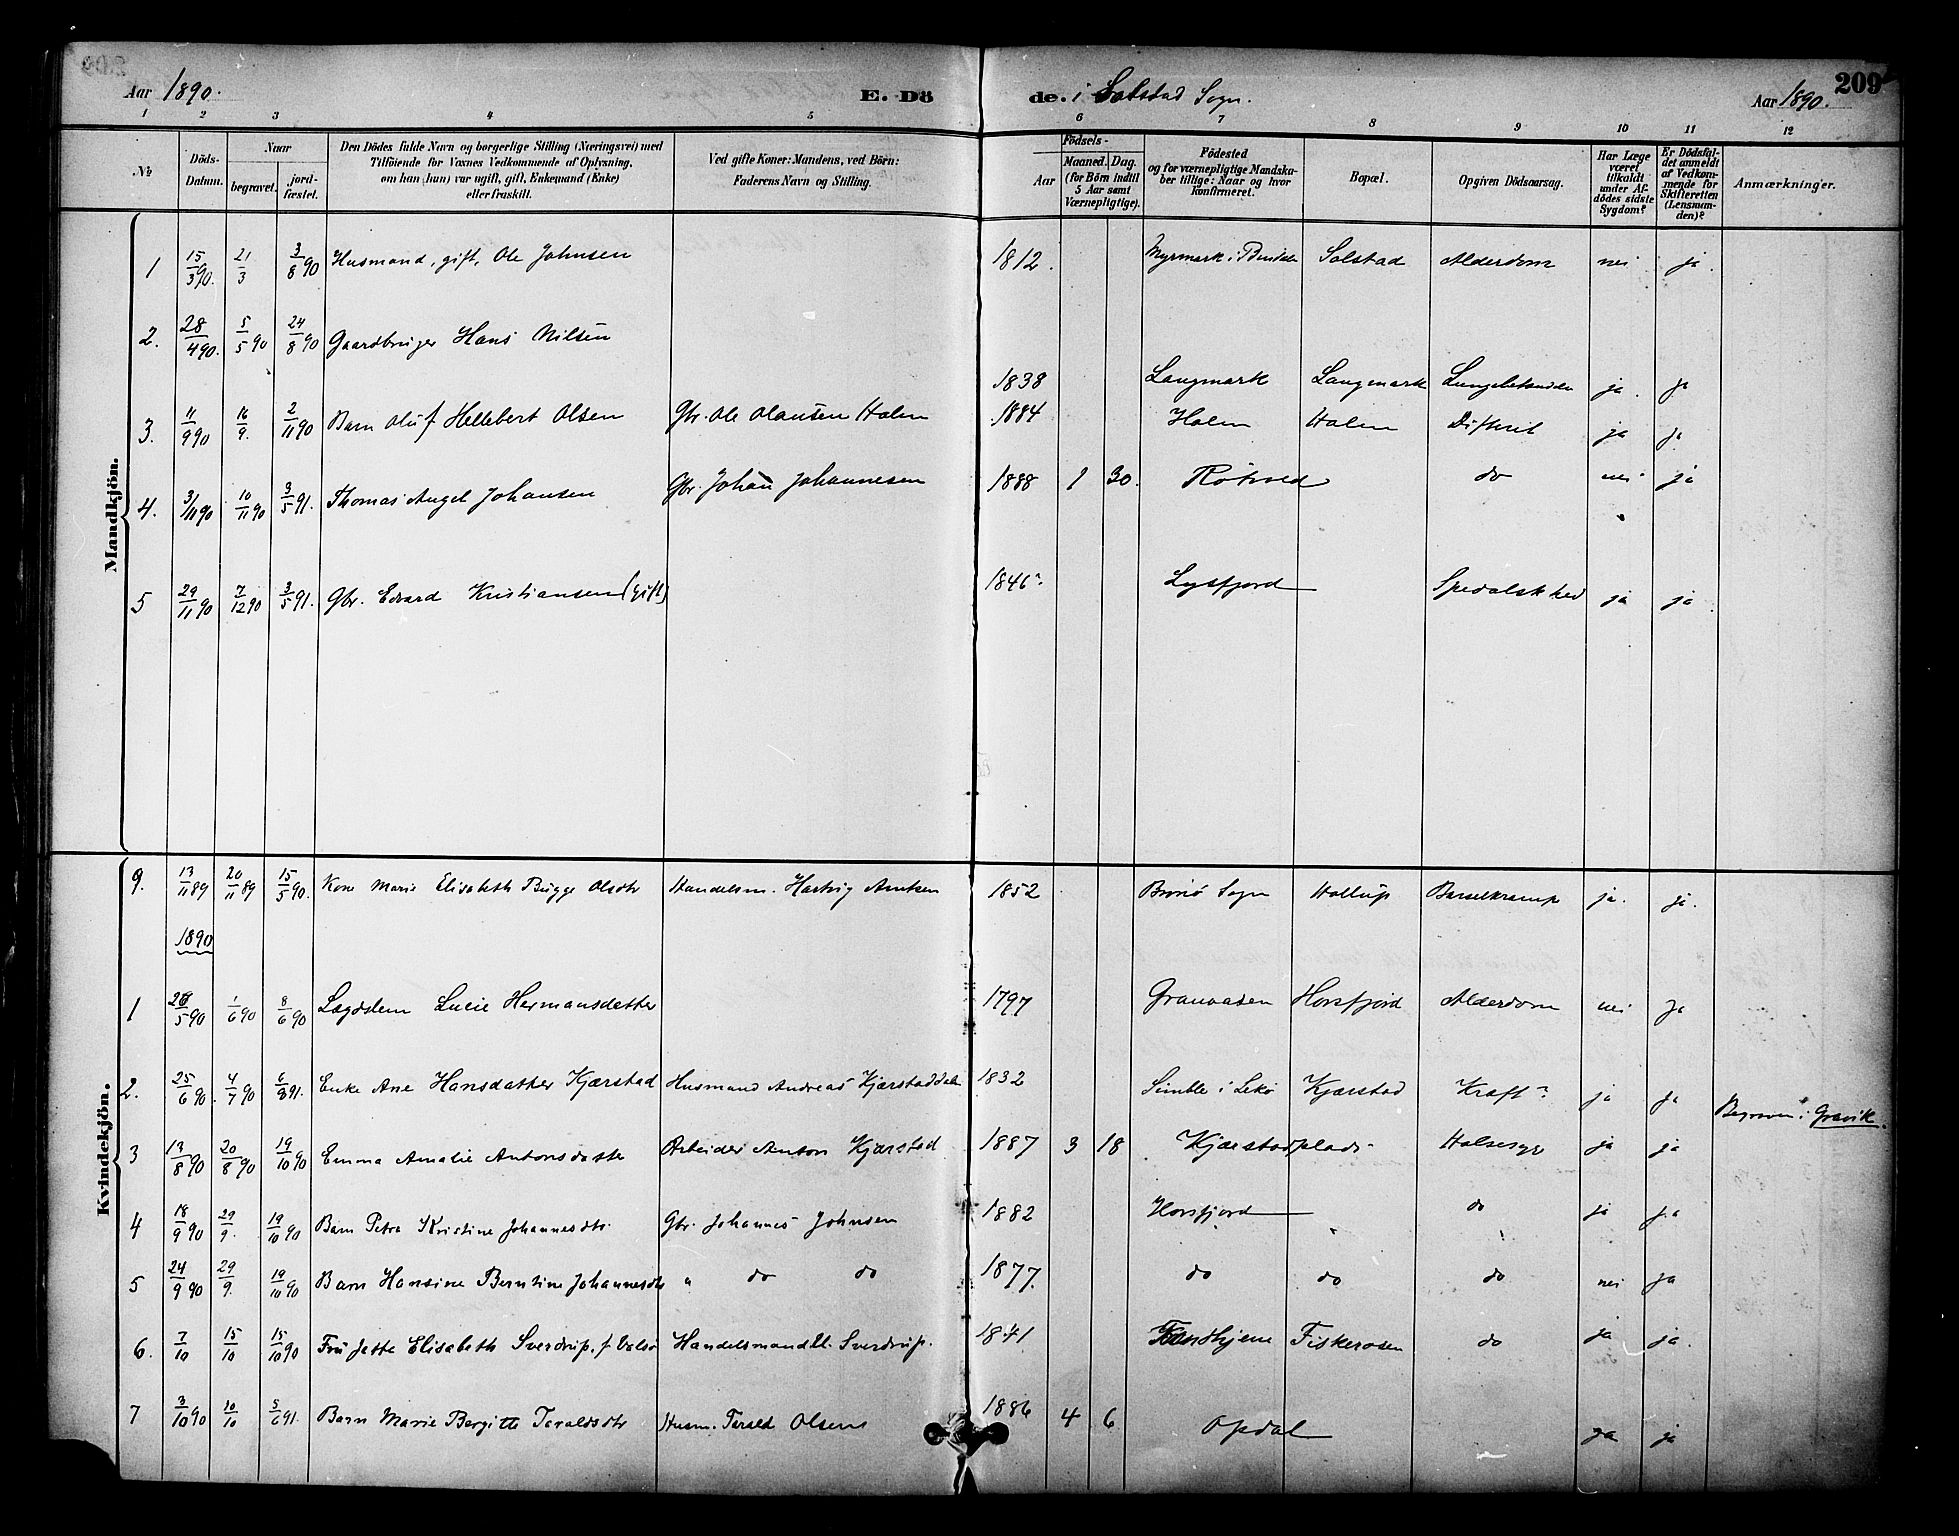 Aar 1890. E. Döde. i Solstad Sogn. Aar 1890. 209
1 2 3 4 5 6 7 8 9 10 11 12
No. Döds-Datum. Naar begravet. jordfæstet. Den Dödes fulde Navn og borgerlige Stilling (Næringsvei) med Tilföiende for Voxnes Vedkommende af Oplysning, om han (hun) var ugift, gift, Enkemand (Enke) eller fraskilt. Ved gifte Koner: Mandens, ved Börn: Faderens Navn og Stilling. Födsels- Aar Maaned. Dag. (for Börn indtil 5 Aar samt Værnepligtige). Födested og for værnepligtige Mandskaber tillige: Naar og hvor konfirmeret. Bopæl. Opgiven Dödsaarsag. Har Læge været tilkaldt under Afdödes sidste Sygdom? Er Dödsfaldet anmeldt af Vedkommende for Skifteretten (Lensmanden)? Anmærkninger.
Mandkjön.
1 15/3 90. 21/3 3/8 90 Husmand, gift, Ole Johnsen 1812. Myrmark i Bindalen Solstad Alderdom nei ja.
2. 28/4 90. 5/5 90 24/8 90 Gaardbruger Hans Nilsen 1838 Langmark Langmark Lungebetændelse ja. ja
3. 11/9 90 16/9. 2/11 90 Barn Oluf Hellebert Olsen Gbr. Ole Olausen Holm 1884 Holm Holm Difterit ja ja
4. 3/11 90 10/11 90 3/5 91. Thomas Angel Johansen Gbr. Johan Johannesen 1888 1 30. Røtveld do nei ja
5 29/11 90 7/12 90 3/5 91. Gbr. Edvard Kristiansen (gift) 1846? Lysfjord Spedalskhed ja ja
Kvindekjön.
9. 13/11 89 20/11 89 15/5 90. Kone Marie Elisabeth Bugge Olsdtr Handelsm. Hartvig Arntsen 1852 Brønø Sogn Hollup Barselkrampe ja. ja.
1890
1 28/5 90 1/6 90 8/6 90 Lægdslem Lucie Hermansdatter 1797 Granaasen Horsfjord Alderdom nei ja
2. 25/6 90. 4/7 90 6/8 91. Enke Ane Hansdatter Kjærstad Husmand Andreas Kjærstaddalen 1832 Simle i Lekø Kjærstad Kræft? ja ja Begraven i Gravik.
3 13/8 90 20/8 90 19/10 90 Emma Amalie Antonsdatter Arbeider Anton Kjærstad 1887 3 18 Kjærstadplads Halsesyge ja ja
4 18/9 90 29/9. 19/10 90 Barn Petra Kristine Johannesdtr. Gbr. Johannes Johnsen 1882 Horsfjord do ja ja
5 24/9 90 29/9. 19/10 90 Barn Hansine Berntine Johannesdtr " do do 1877. do do do nei ja
6. 7/10 15/10 15/10 90 Fru Jette Elisabeth Sverdrup, f. Handelsmand Sverdrup. 1841 Trondhjem Fiskerosen do ja ja.
7 3/10 90 10/10 5/6 91. Barn Marie Bergitte Taraldsdtr Husm. Tarald Olsen 1886 4 6 Opdal ja ja